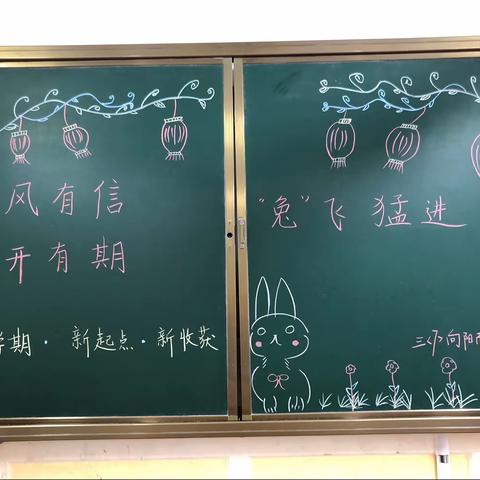 风有信
开有期
学期·新起点·新收获
"兔"飞猛进
三小向阳